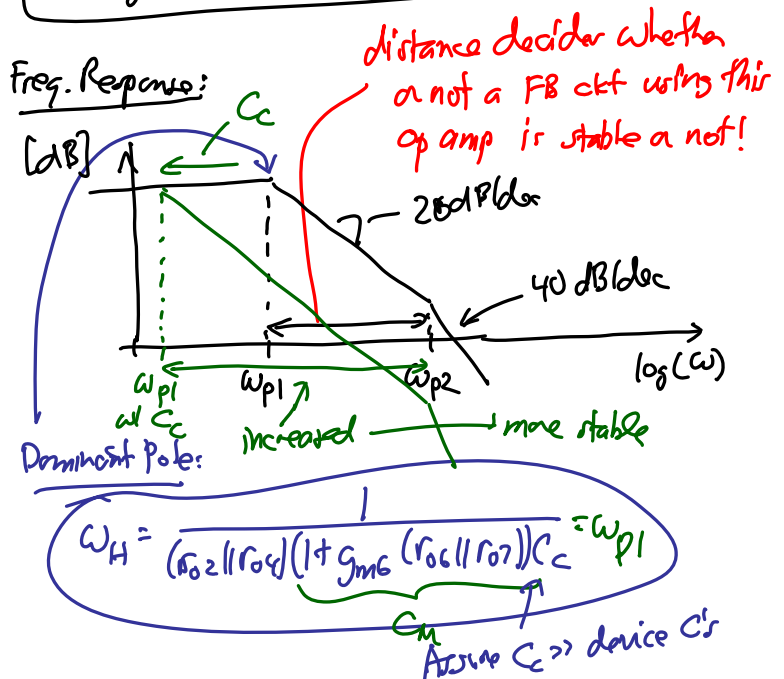 distance decides whether
or not a FB ckt using this
op amp is stable or not!
Freq. Response:
Cc
[dB]
20dB/dec
40 dB/dec
log(ω)
ωp1
w/ Cc
ωp1
ωp2
increased
more stable
Dominant Pole:
ωH = 1 / (ro2||ro4)(1+gm6(ro6||ro7))Cc = ωp1
CM
Assume Cc >> device C's